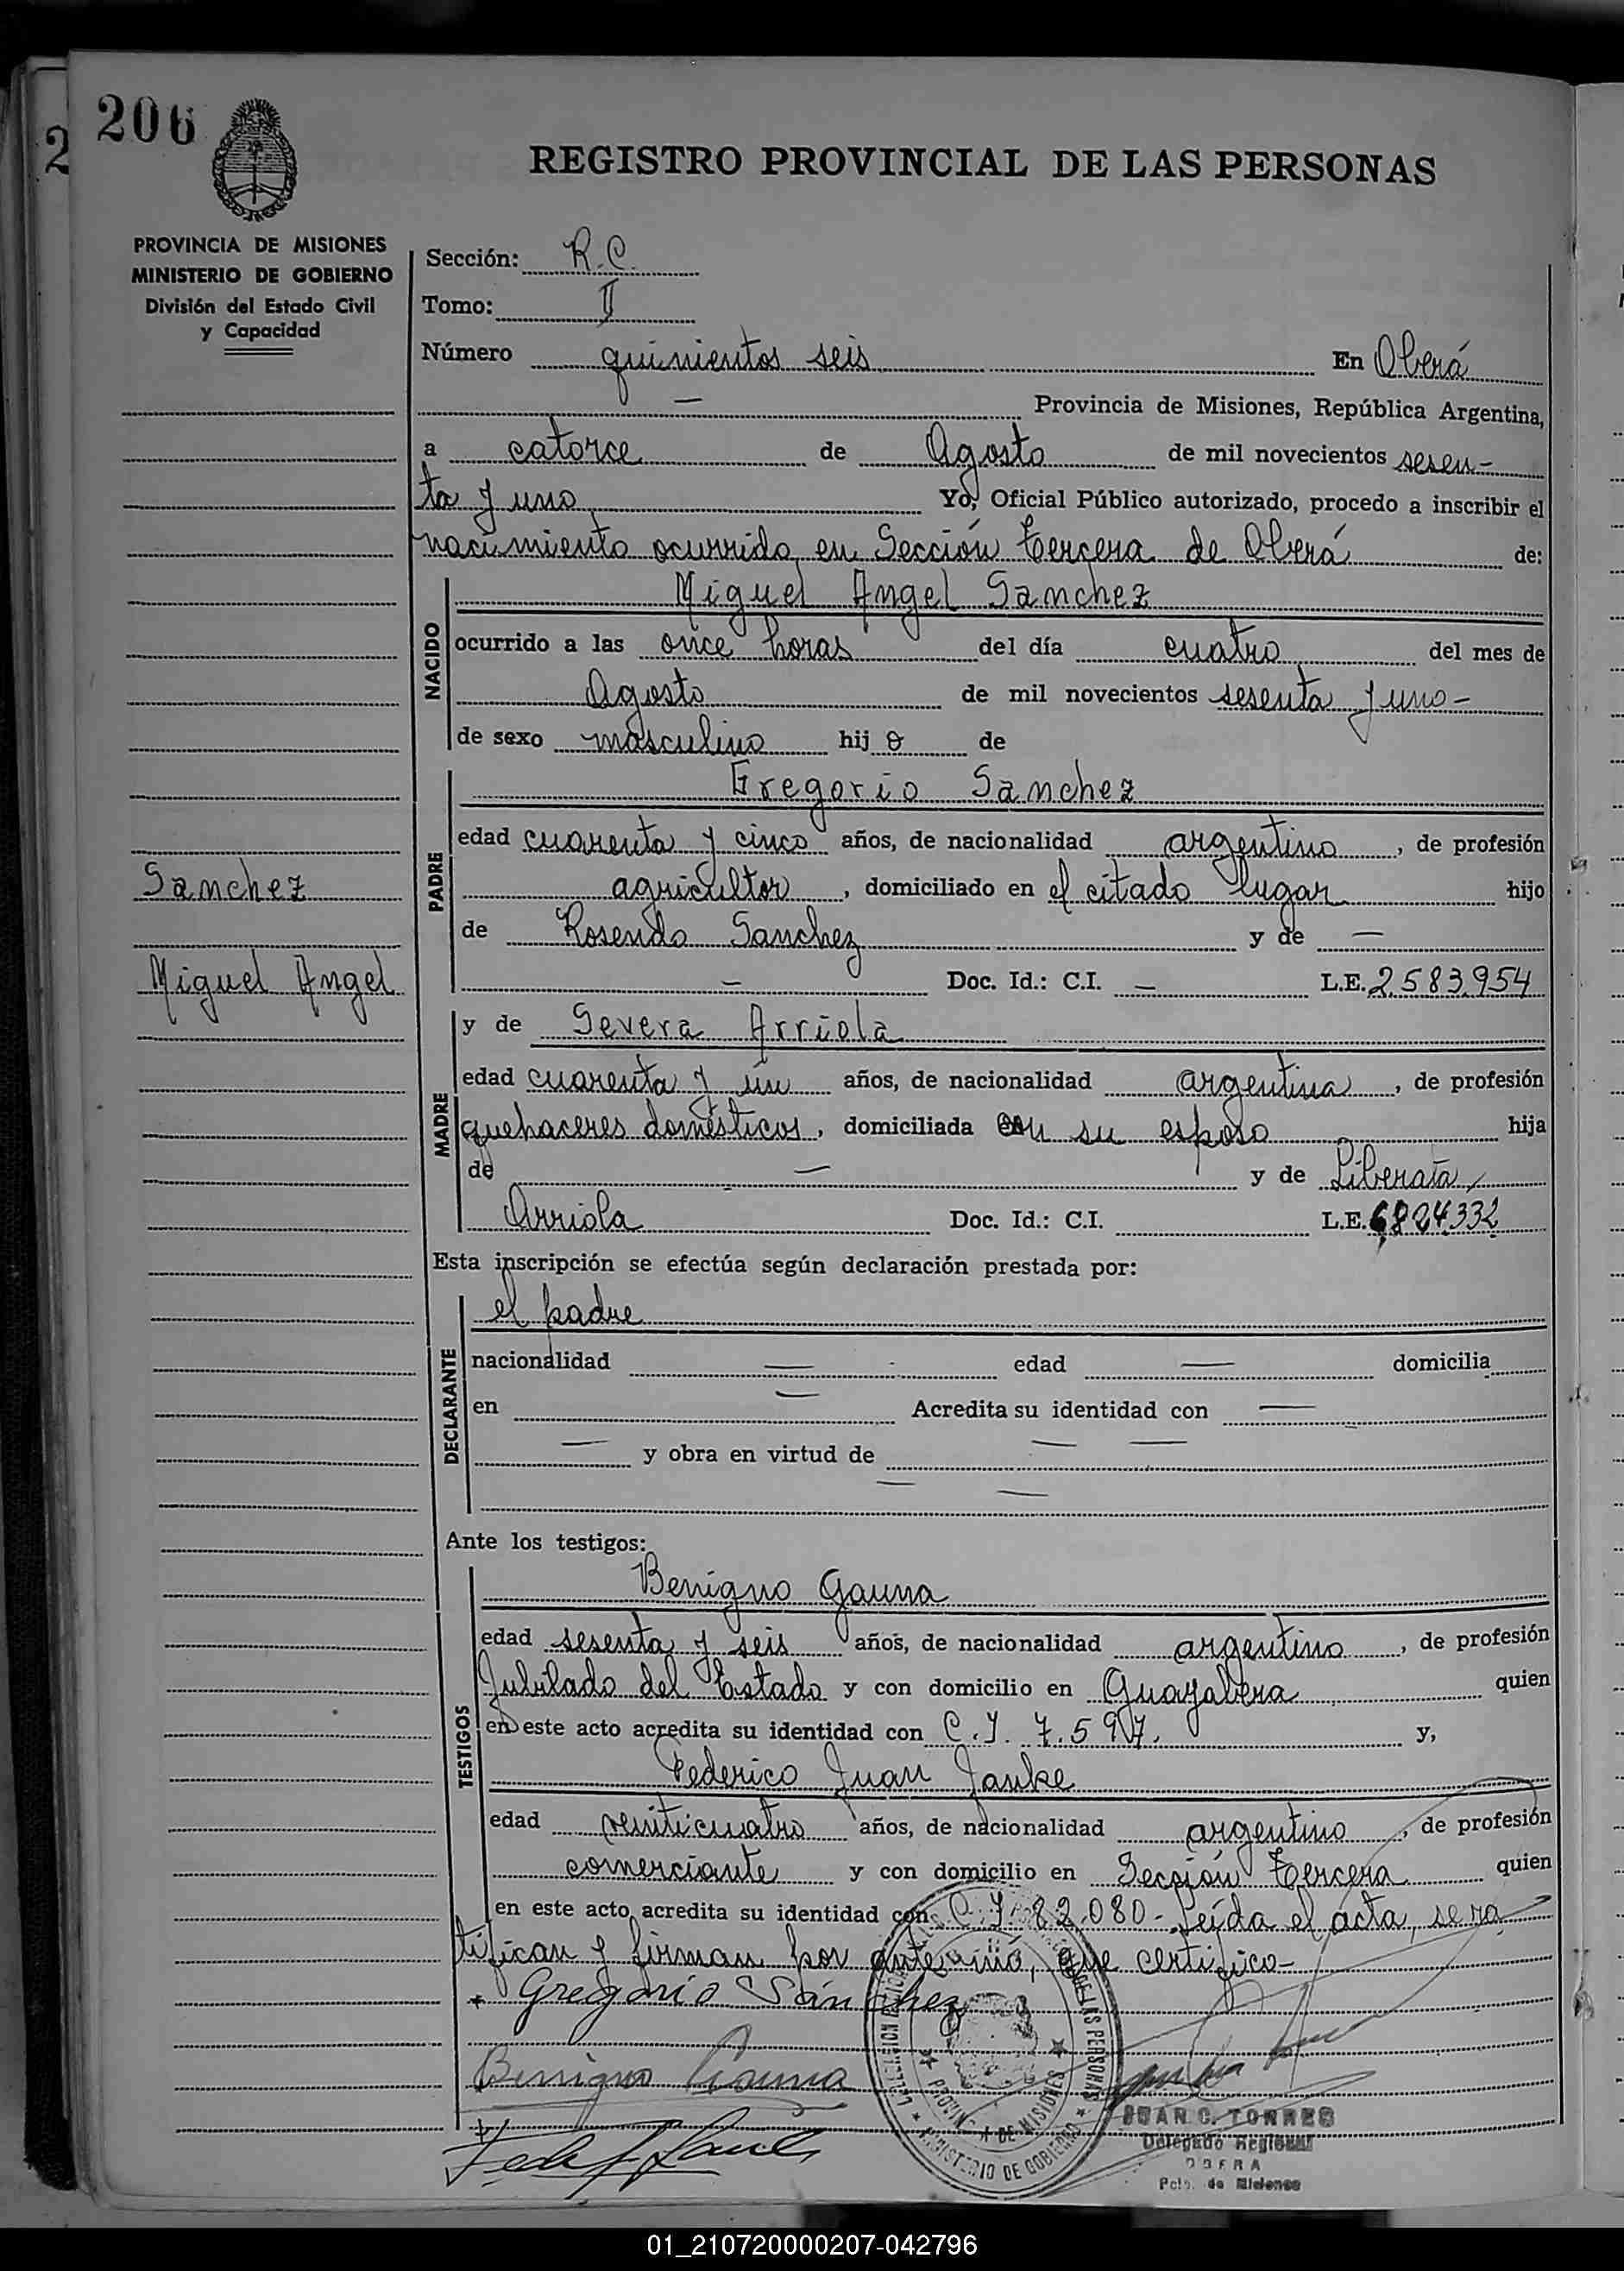 206
2
REGISTRO PROVINCIAL DE LAS PERSONAS
PROVINCIA DE MISIONES
MINISTERIO DE GOBIERNO
División del Estado Civil
y Capacidad
Sección: R.C.
Tomo: II
Número quinientos seis En Oberá
— Provincia de Misiones, República Argentina,
a catorce de Agosto de mil novecientos sesen-
ta y uno Yo, Oficial Público autorizado, procedo a inscribir el
nacimiento ocurrido en Sección Tercera de Oberá de:
NACIDO
Miguel Angel Sanchez
ocurrido a las once horas del día cuatro del mes de
Agosto de mil novecientos sesenta y uno-
de sexo masculino hij o de
PADRE
Gregorio Sanchez
edad cuarenta y cinco años, de nacionalidad argentino, de profesión
agricultor, domiciliado en el citado lugar hijo
de Rosendo Sanchez y de —
— Doc. Id.: C.I. — L.E. 2.583.954
Sanchez
Miguel Angel
MADRE
y de Severa Arriola
edad cuarenta y un años, de nacionalidad argentina, de profesión
quehaceres domésticos, domiciliada con su esposo hija
de — y de Liberata
Arriola Doc. Id.: C.I. L.E. 6824332
Esta inscripción se efectúa según declaración prestada por:
DECLARANTE
el padre
nacionalidad — edad — domicilia
en — Acredita su identidad con —
— y obra en virtud de — —
— —
Ante los testigos:
TESTIGOS
Benigno Gauna
edad sesenta y seis años, de nacionalidad argentino, de profesión
Jubilado del Estado y con domicilio en Guayabera quien
en este acto acredita su identidad con C.I. 7.597. y,
Federico Juan Janke
edad veinticuatro años, de nacionalidad argentino, de profesión
comerciante y con domicilio en Sección Tercera quien
en este acto acredita su identidad con C.I. 82.080- Leída el acta, se ra
tifican y firman por ante mí, que certifico-
Gregorio Sánchez
Benigno Gauna
DE LAS PERSONAS
PROVINCIA DE MISIONES
MINISTERIO DE GOBIERNO
JUAN C. TORRES
Delegado Regional
OBERA
Pcia. de Misiones
01_210720000207-042796